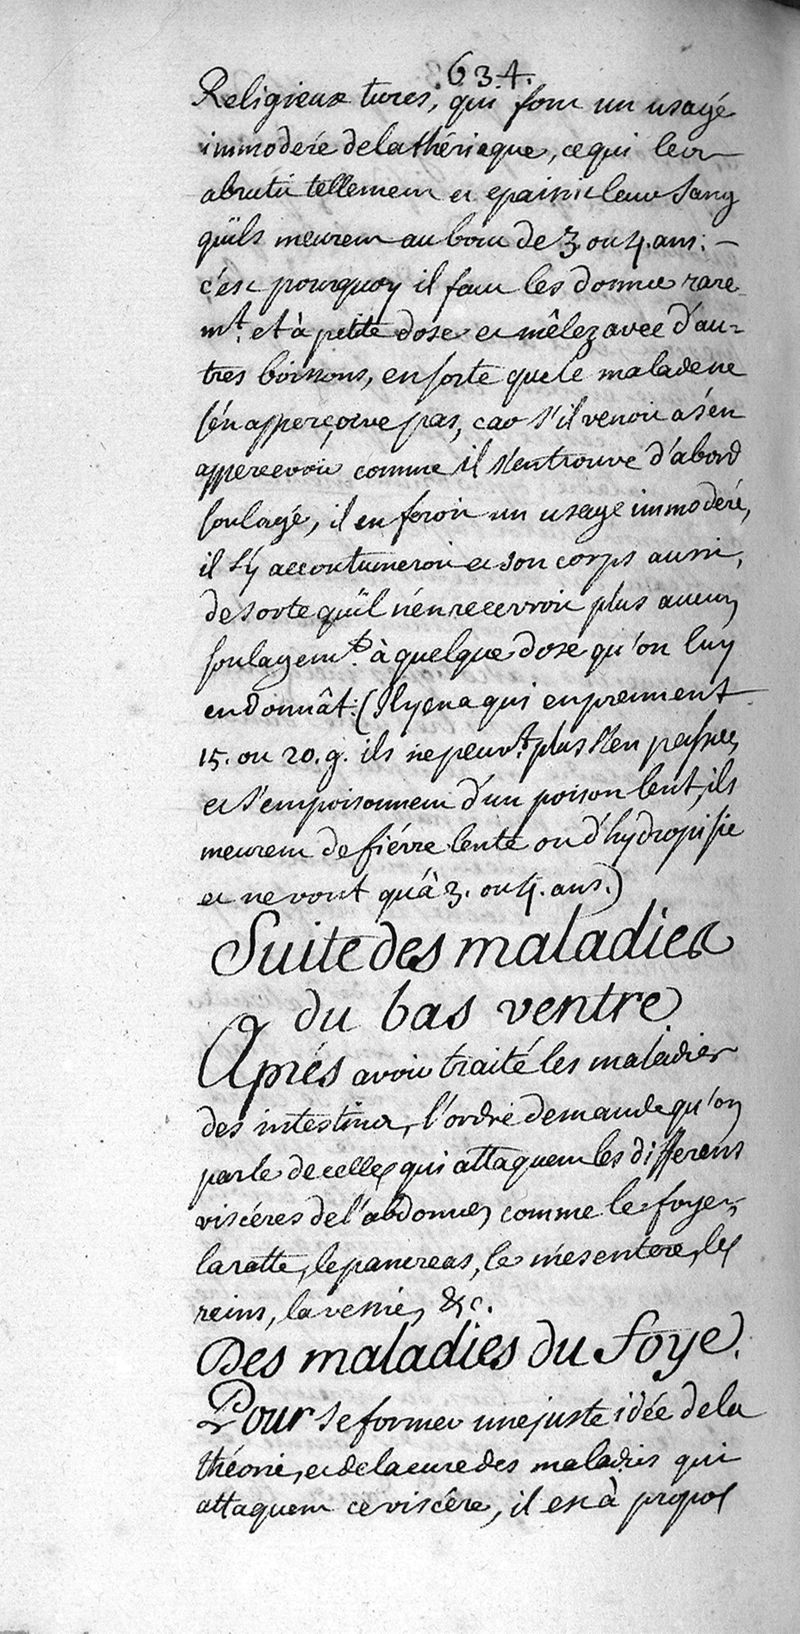 634.
Religieux turcs, qui font un usage
immoderé de la thériaque, ce qui leur
abrutit tellement et epaissit leur sang
qu'ils meurent au bout de 3. ou 4. ans: –
c'est pourquoy il faut les donner rare-
mt. et à petite dose et mêlez avec d'au-
tres boissons, en sorte que le malade ne
s'en apperçoive pas, car s'il venoit a s'en
appercevoir comme il s'en trouve d'abord
soulagé, il en feroit un usage immoderé,
il s'y accoutumeroit et son corps aussi,
de sorte qu'il n'en recevroit plus aucun
soulagemt. à quelque dose qu'on luy
en donnât: (Il y en a qui en prennent
15. ou 20. g. ils ne peuvt. plus s'en passer,
et s'empoisonnent d'un poison lent, ils
meurent de fiévre lente ou d'hydropisie
et ne vont qu'à 3. ou 4. ans.)
Suite des maladies
du bas ventre
Aprés avoir traité les maladies
des intestins, l'ordre demande qu'on
parle de celles qui attaquent les differens
viscéres de l'abdomen comme le foye,
la ratte, le pancreas, le mesentere, les
reins, la vessie, &c.
Des maladies du foye.
Pour se former une juste idée de la
théorie, et de la cure des maladies qui
attaquent ce viscêre, il est à propos